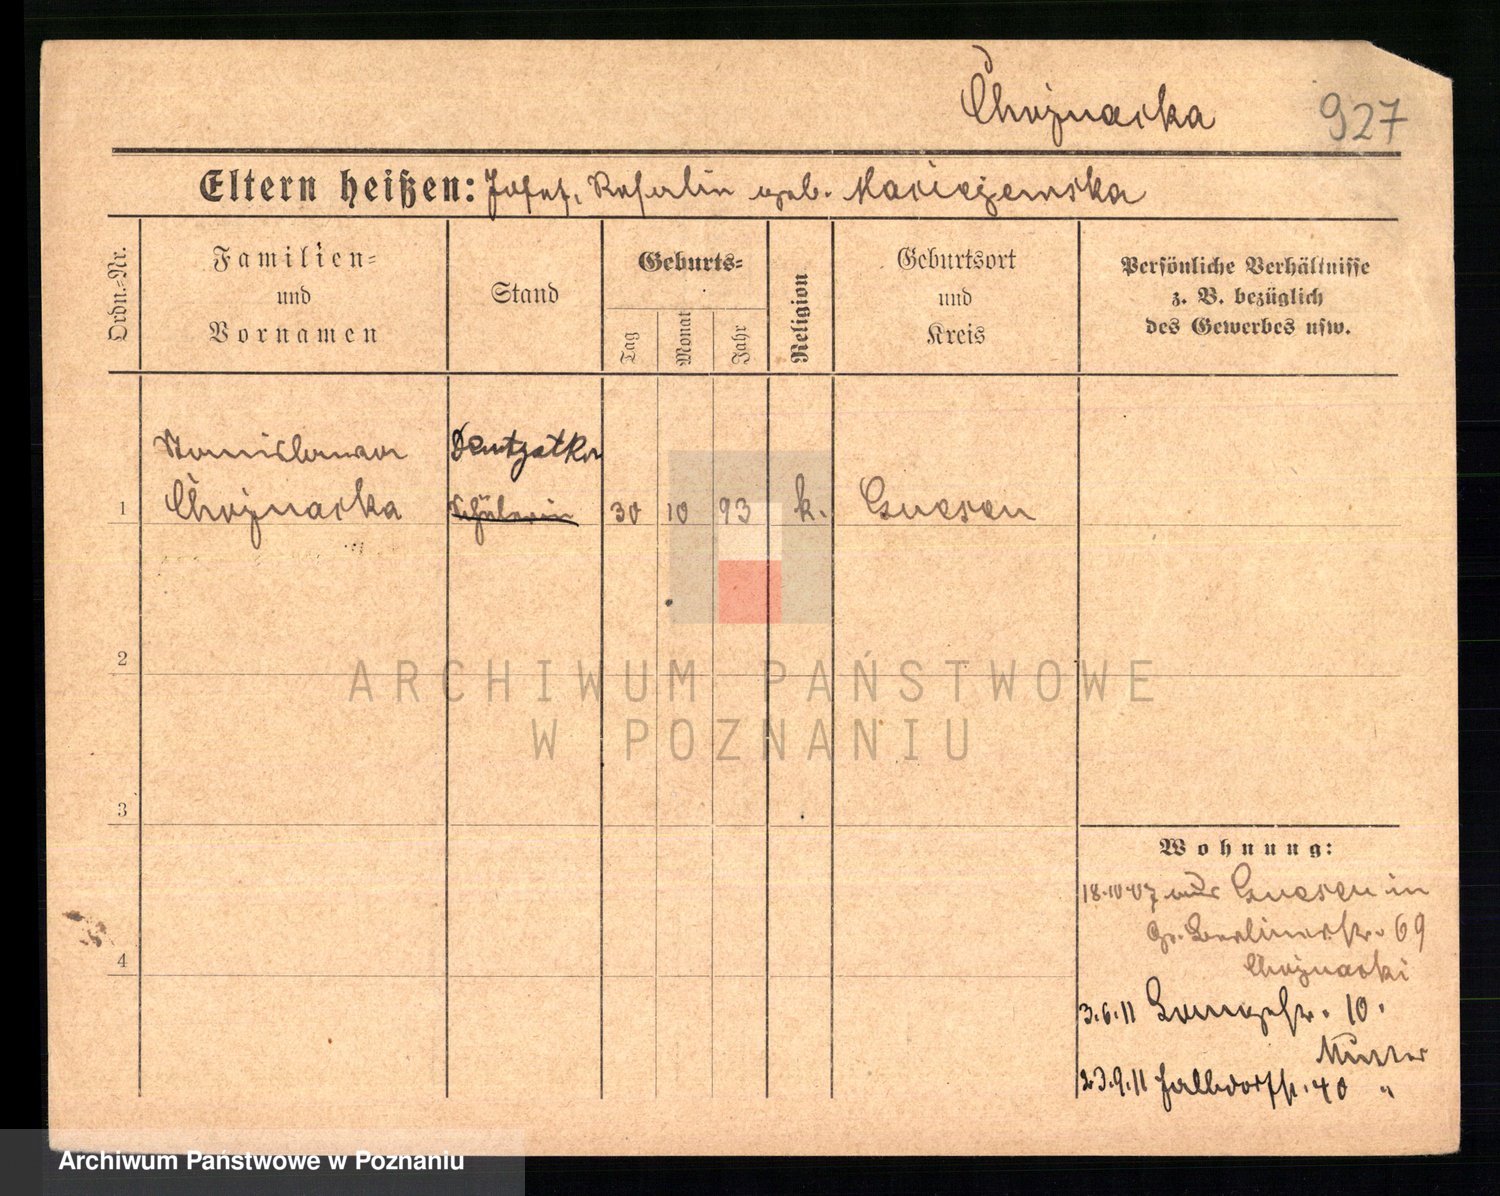 Chojnacka 927
Eltern heißen: Josef, geb. Maciejewska
Ordn.=Nr.
Familien=
und
Vornamen
Stand
Geburts=
Tag
Monat
Jahr
Religion
Geburtsort
und
Kreis
Persönliche Verhältnisse
z. B. bezüglich
des Gewerbes usw.
Stanislawa
1 Chojnacka Schülerin 30 10 93 k. Gnesen
2
3
4
Wohnung:
18.10.07 aus Gnesen in
Gr. Berlinerstr. 69
Chojnacki
3.6.11 10.
Mutter
23.9.11 Halbdorfstr. 40 "
ARCHIWUM PAŃSTWOWE
W POZNANIU
Archiwum Państwowe w Poznaniu